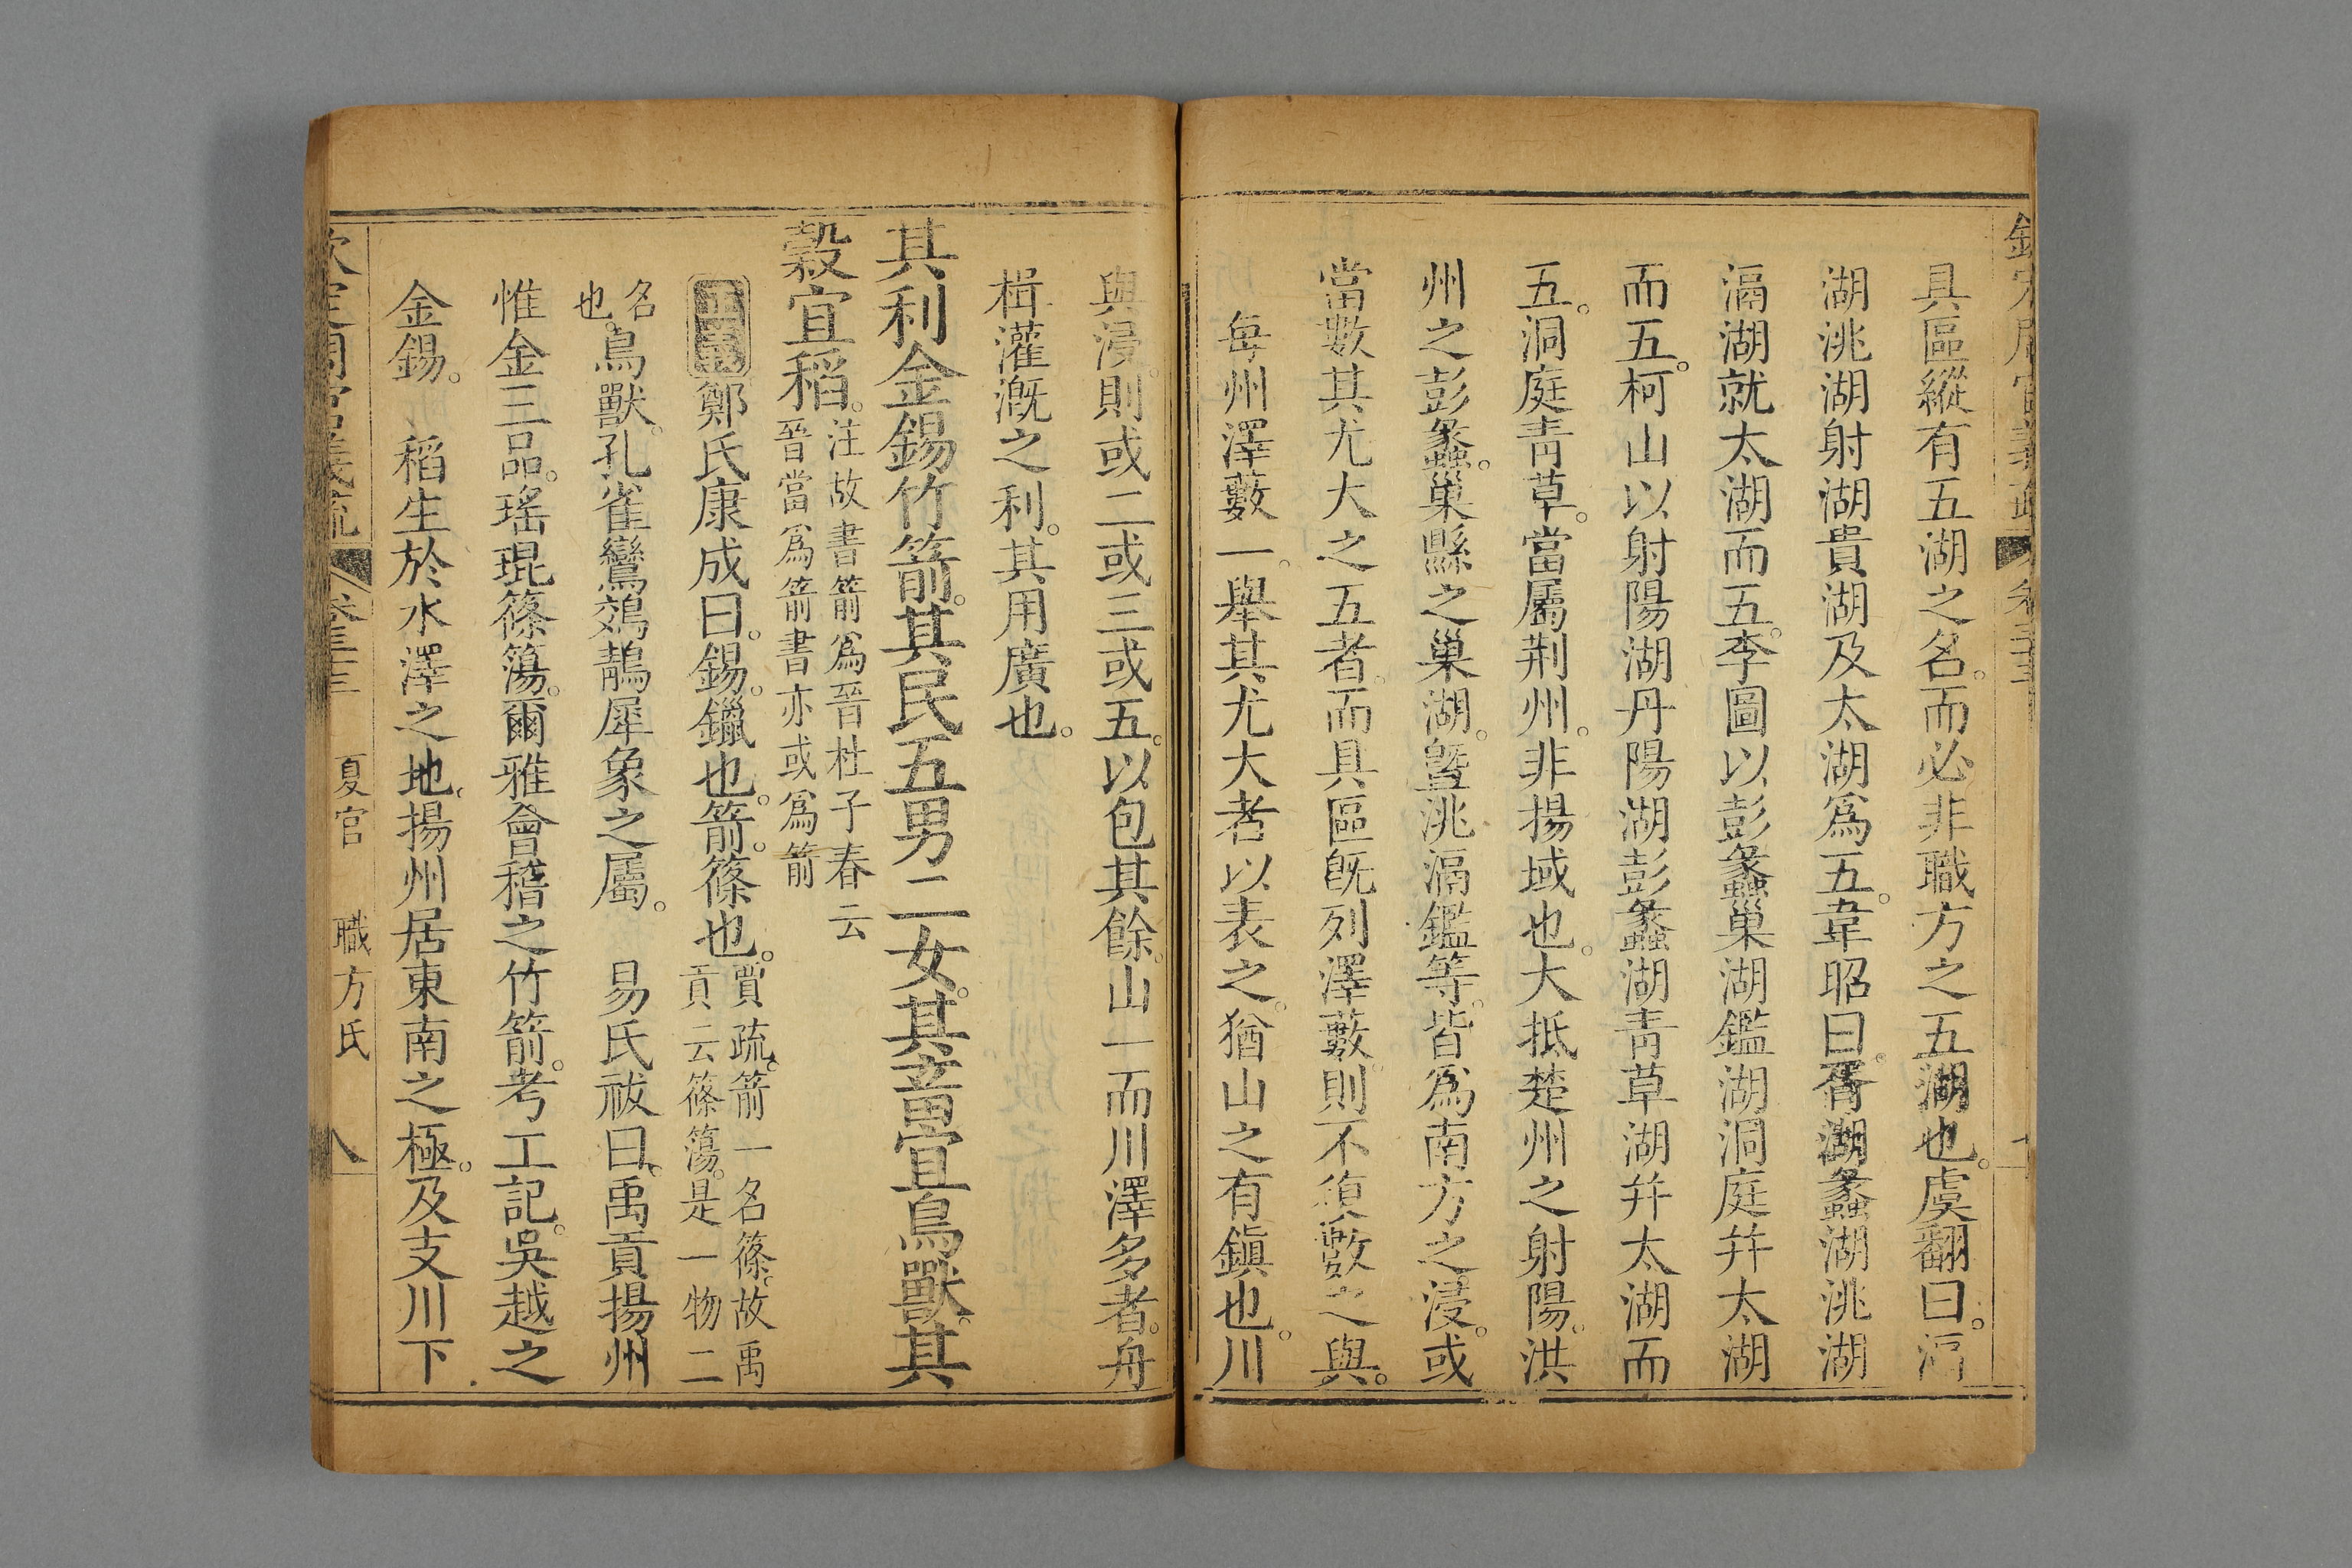 具區縱有五湖之名。而必非職方之五湖也。虞翻曰。滆
湖洮湖射湖貴湖及太湖爲五。韋昭曰。胥湖蠡湖洮湖
滆湖就太湖而五。李圖以彭蠡巢湖鑑湖洞庭幷太湖
而五。柯山以射陽湖丹陽湖彭蠡湖靑草湖幷太湖而
五。洞庭靑草。當屬荆州。非揚域也。大抵楚州之射陽。洪
州之彭蠡。巢縣之巢湖。曁洮滆鑑等。皆爲南方之浸。或
當數其尤大之五者。而具區旣列澤藪。則不復數之與。
每州澤藪一。舉其尤大者以表之。猶山之有鎭也。川
與浸。則或二或三或五。以包其餘。山一而川澤多者。舟
楫灌漑之利。其用廣也。
其利金錫竹箭。其民五男二女。其畜宜鳥獸。其
穀宜稻。
注故書箭爲晉杜子春云
晉當爲箭書亦或爲箭
鄭氏康成曰。錫。鑞也。箭。篠也。
賈疏。箭一名篠。故禹
貢云篠簜。是一物二
名
也。
鳥獸。孔雀鸞鵁鶄犀象之屬。 易氏祓曰。禹貢揚州
惟金三品。瑤琨篠簜。爾雅會稽之竹箭。考工記。吳越之
金錫。 稻生於水澤之地。揚州居東南之極。及支川下
夏官 職方氏 八